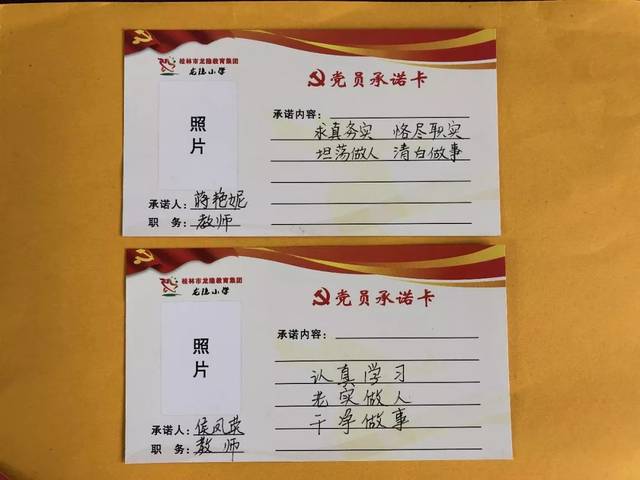 桂林市龙隐教育集团
龙隐小学
党员承诺卡
照片
承诺内容：
求真务实 恪尽职实
坦荡做人 清白做事
承诺人：蒋艳妮
职务：教师
桂林市龙隐教育集团
龙隐小学
党员承诺卡
照片
承诺内容：
认真学习
老实做人
干净做事
承诺人：侯凤英
职务：教师